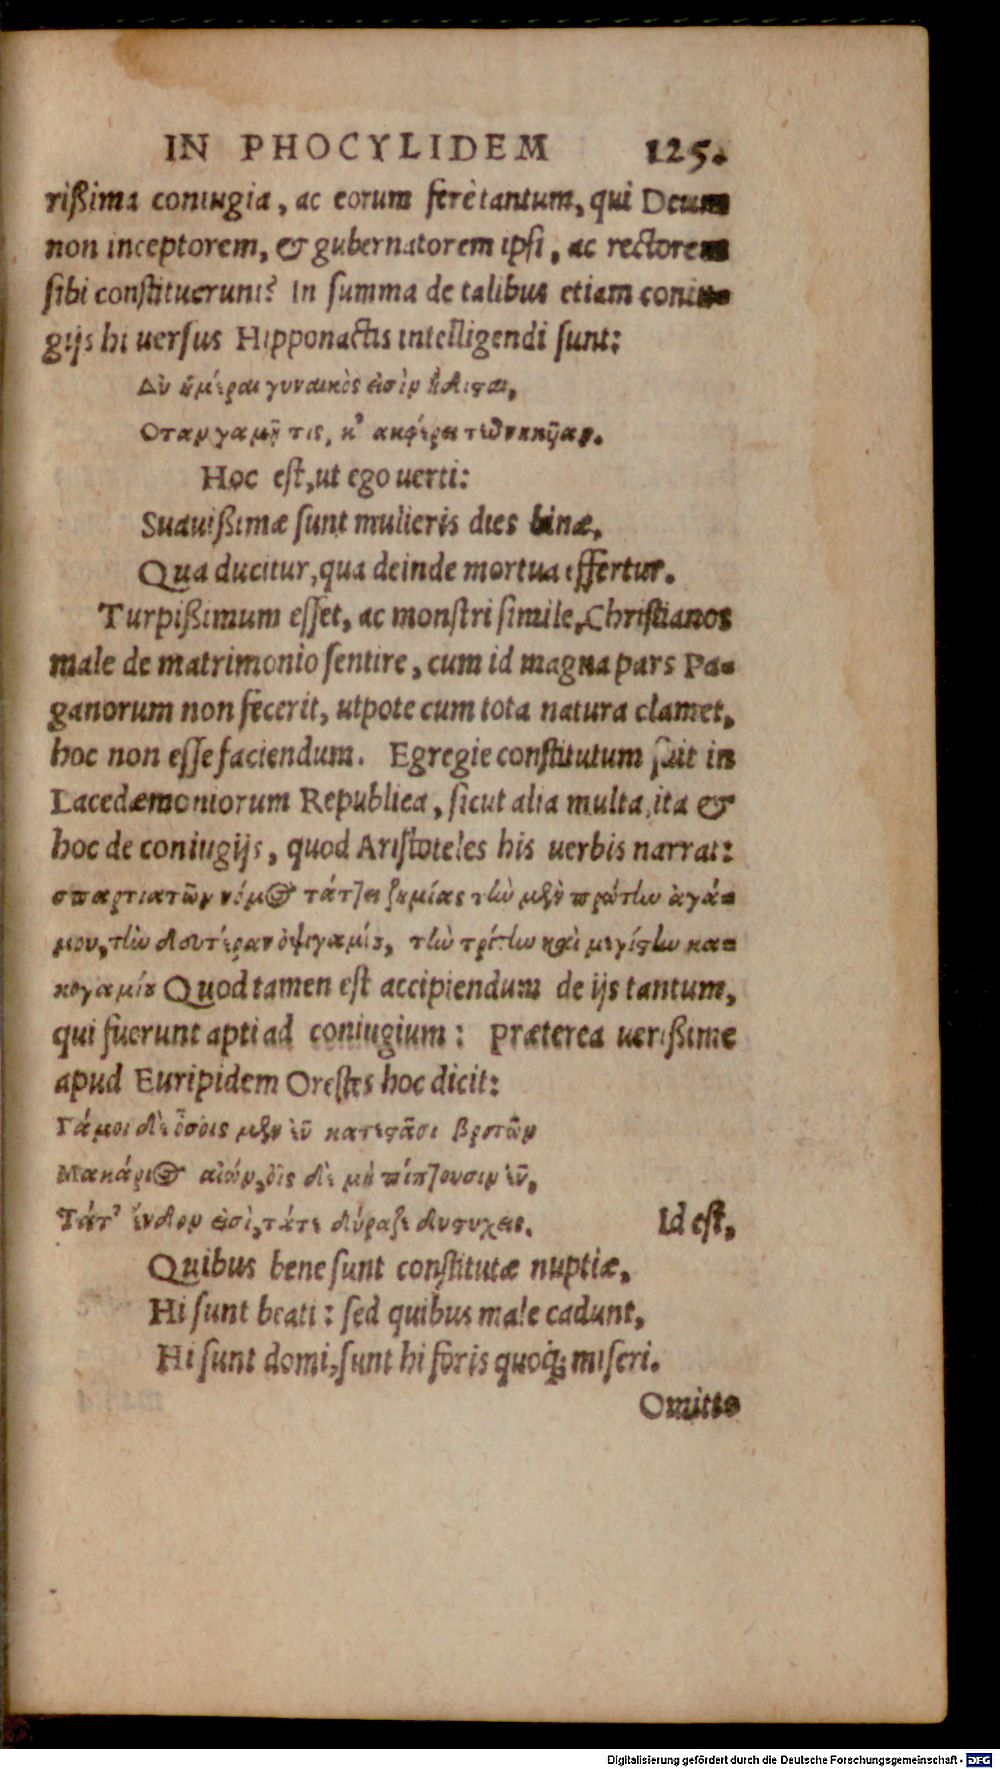 IN PHOCYLIDEM 125.
rißima coniugia, ac eorum ferè tantum, qui Deum
non inceptorem, & gubernatorem ipsi, ac rectorem
sibi constituerunt? In summa de talibus etiam coniu-
gijs hi uersus Hipponactis intelligendi sunt:
Δύ ἡμέραι γυναικός εἰσὶν ἥδισται,
Οταν γαμῇ τις, κ' ἀκφέρει τεθνηκῆαν.
Hoc est, ut ego uerti:
Suauißimæ sunt mulieris dies binæ,
Qua ducitur, qua deinde mortua effertur.
Turpißimum esset, ac monstri simile, Christianos
male de matrimonio sentire, cum id magna pars Pa-
ganorum non fecerit, utpote cum tota natura clamet,
hoc non esse faciendum. Egregie constitutum fuit in
Lacedæmoniorum Republica, sicut alia multa, ita &
hoc de coniugijs, quod Aristoteles his uerbis narrat:
σπαρτιατῶν νόμος τάττει ζημίας τὴν μὲν πρώτην ἀγα-
μίου, τὴν δευτέραν ὀψιγαμίου, τὴν τρίτην καὶ μεγίστην κα-
κογαμίου Quod tamen est accipiendum de ijs tantum,
qui fuerunt apti ad coniugium: Præterea uerißime
apud Euripidem Orestes hoc dicit:
Γάμοι δὲ ὅσοις μὲν εὖ κατεστᾶσι βροτῶν
Μακάριος αἰών, οἷς δὲ μὴ πίπτουσιν εὖ,
Τάτ' ἔνδον εἰσὶ, τάτε θύραζε δυστυχεῖς. Id est,
Quibus bene sunt constitutæ nuptiæ,
Hi sunt beati: sed quibus male cadunt,
Hi sunt domi, sunt hi foris quoq; miseri.
Omitto
Digitalisierung gefördert durch die Deutsche Forschungsgemeinschaft - DFG